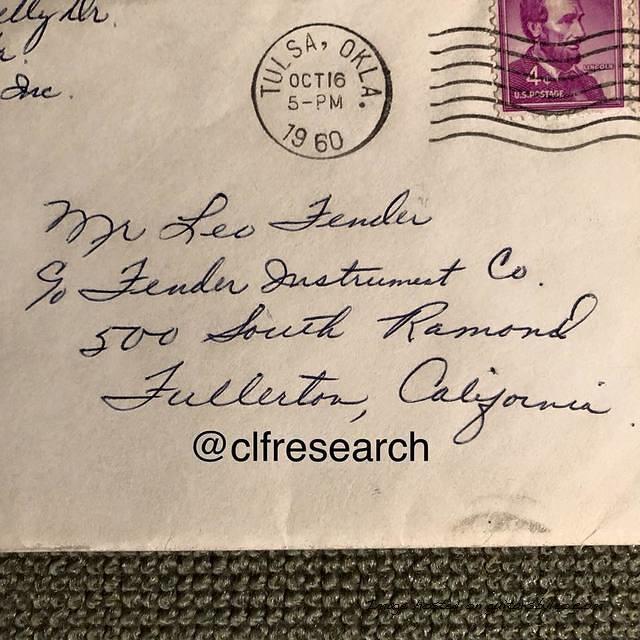 elly Dr.
r.
Inc.
TULSA, OKLA.
OCT 16
5-PM
1960
4¢
LINCOLN
U.S. POSTAGE
Mr Leo Fender
c/o Fender Instrument Co.
500 South Ramond
Fullerton, California
@clfresearch